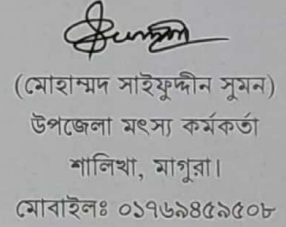 (মোহাম্মদ সাইফুদ্দীন সুমন)
উপজেলা মৎস্য কর্মকর্তা
শালিখা, মাগুরা।
মোবাইলঃ ০১৭৬৯৪৫৯৫০৮